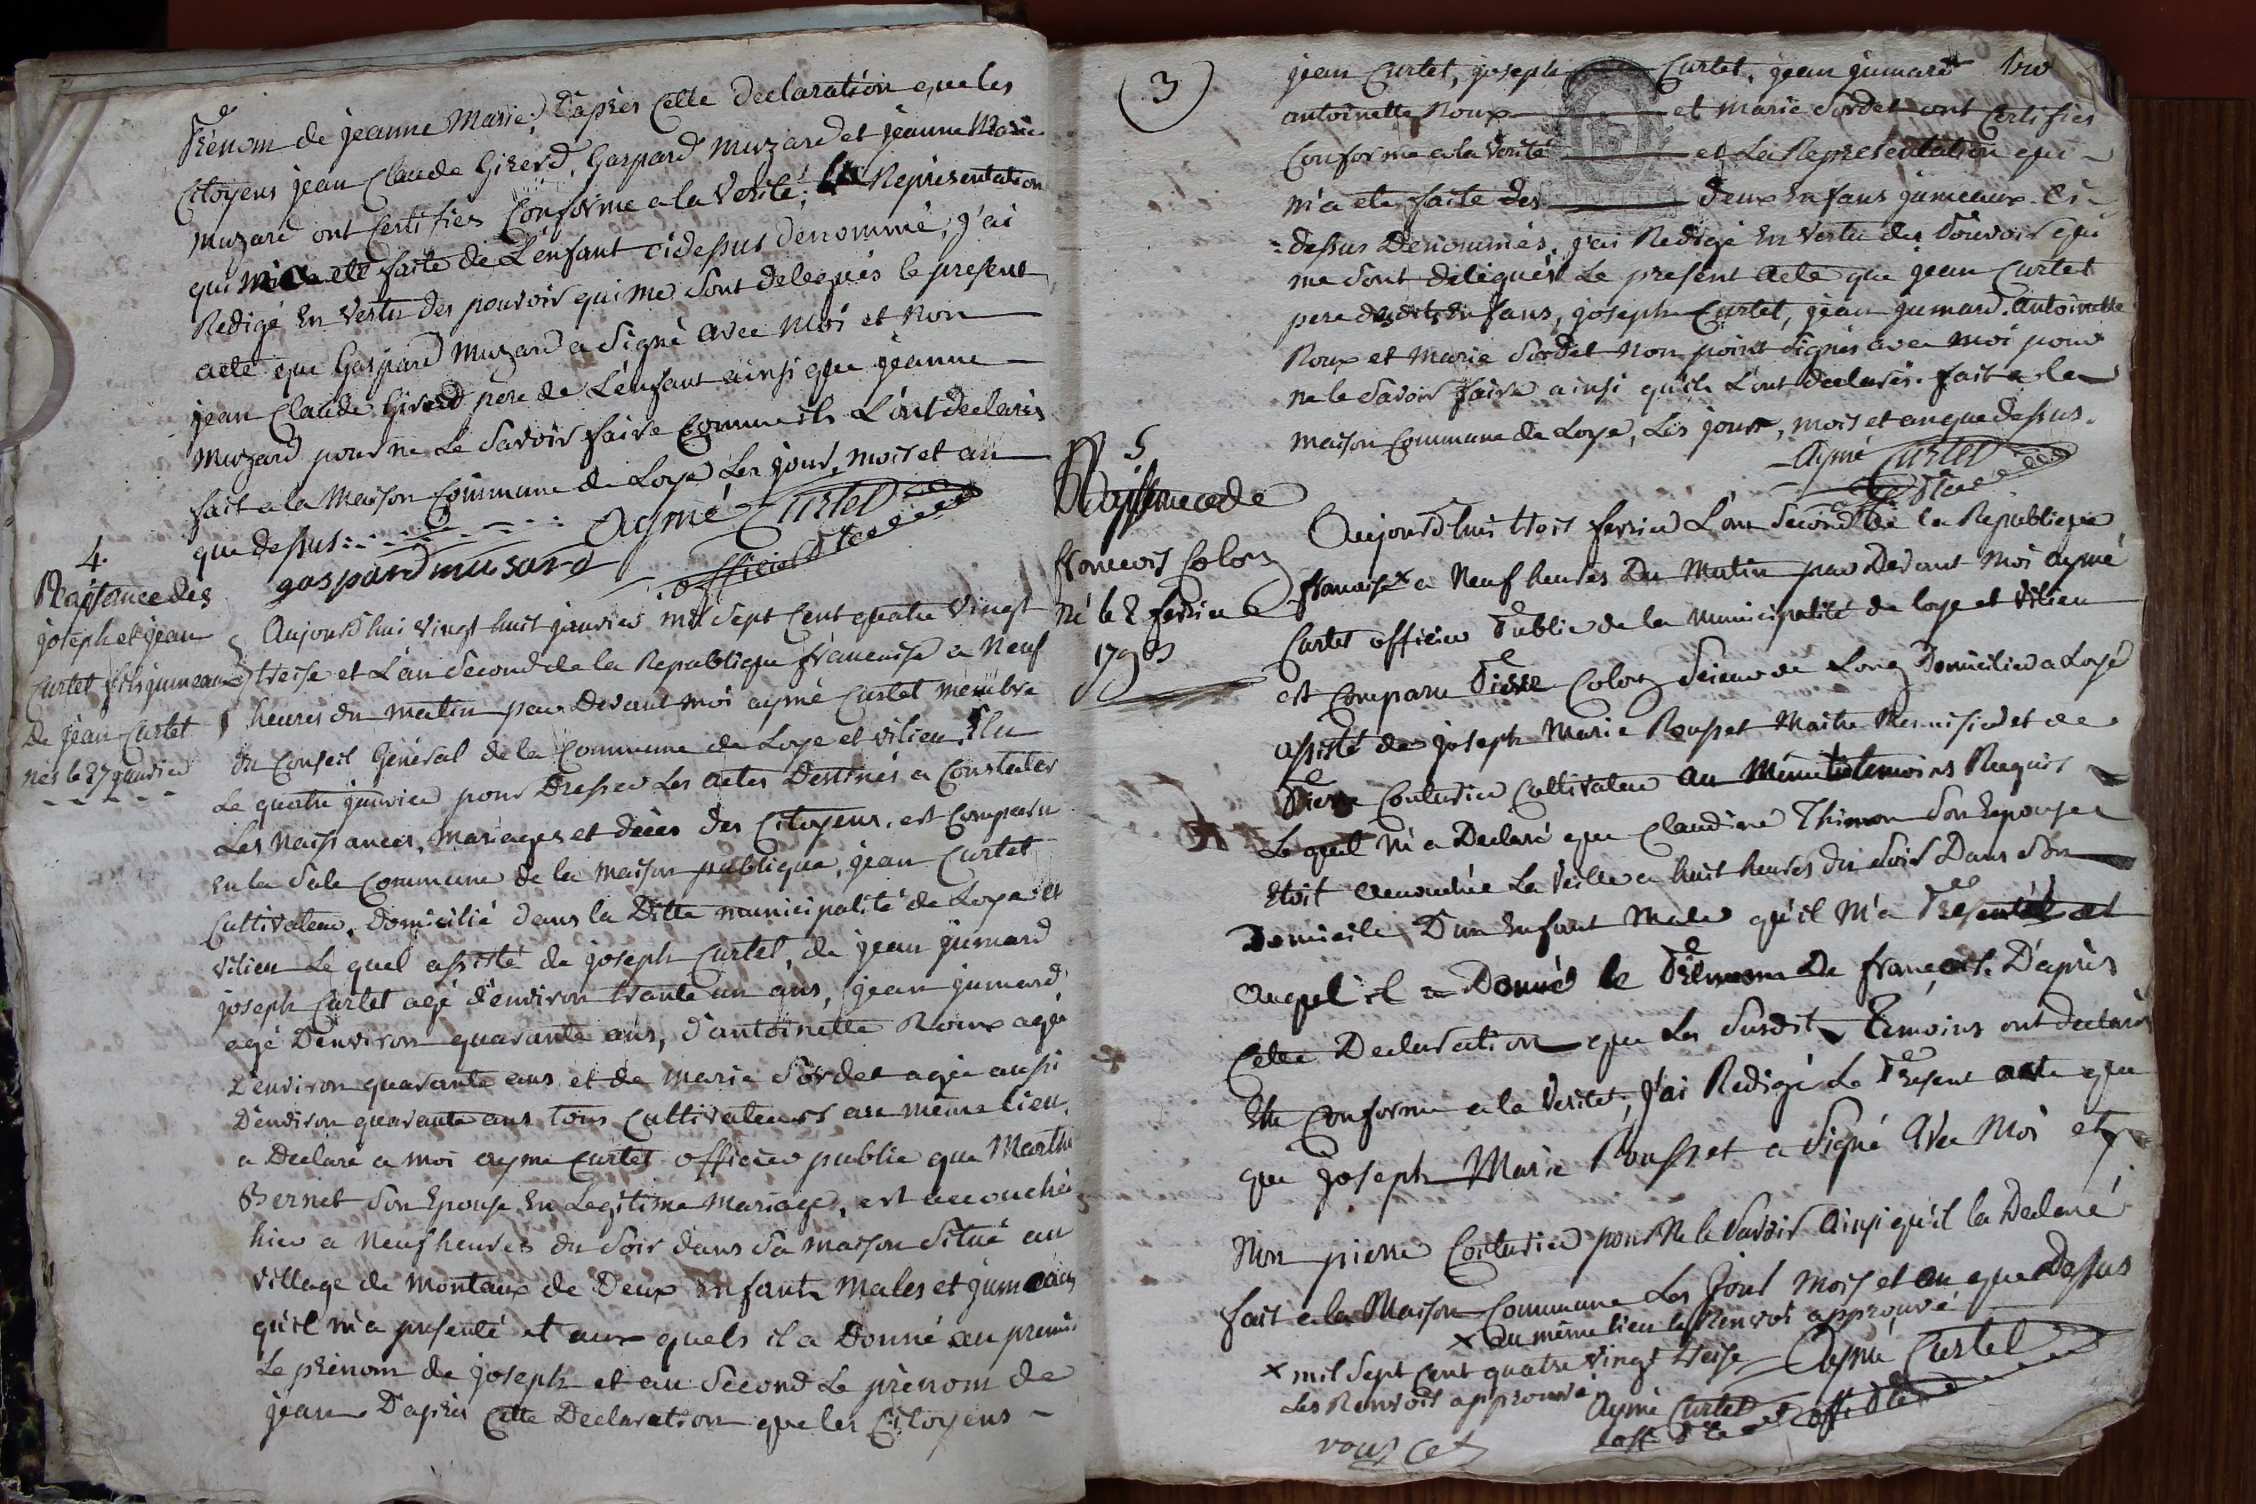 Prénom de jeanne Marie, D'après Cette declaration que les
Citoyens jean Claude Girerd, Gaspard Muzard et jeanne Marie
Muzard ont Certifiés Conforme a la Verité, la Représentation
qui m'a eté faite de L'enfant cidessus dénommé, j'ai
Redigé En Vertu des pouvoir qui me sont delegués le present
acte que Gaspard Muzard a signé avec Moi et Non
jean Claude Girerd pere de L'enfant ainsi que jeanne
Muzard pour ne Le savoir faire Comme ils L'ont declarés
fait a la Maison Commune de Loye Les jour, mois et an
que dessus
Aymé Curtet
gaspard musard
officier
4.
Naissance des
joseph et jean
Curtet fils jumeaux
De jean Curtet
nés le 27 janvier
Aujourd'hui vingt huit janvier mil sept Cent quatre Vingt
treise et L'an second de la Republique francaise a Neuf
heures du matin par Devant moi aymé Curtet membre
du Conseil Général de la Commune de Loye et vilieu, Elu
Le quatre janvier pour Dresser Les actes Destinés a Constater
Les Naissances, Mariages et décès des Citoyens, est Comparu
En la Sale Commune de la maison publique, jean Curtet
Cultivateur, domicilié dans la Ditte municipalité de Loye et
vilieu Le quel assisté de joseph Curtet, de jean jumard
joseph Curtet agé d'environ trante un ans, jean jumard
agé D'environ quarante ans, d'antoinette Roux agée
D'environ quarante ans et de marie Sordet agée aussi
D'environ quarante ans tous Cultivateurs au même lieu,
a Declaré a moi aymé Curtet officier public que Marthe
Bernet son Epouse En Legitime Mariage, est accouchée
hier a Neuf heures du Soir dans Sa maison Situé au
village de Montaux de Deux Enfants Males et jumeaux
qu'il m'a presenté et aux quels il a Donné au premier
Le prénom de joseph et au Second Le prénom de
jean D'après Cette Declaration que les Citoyens
(3)
jean Curtet, joseph Curtet, jean jumard
antoinette Roux et marie Sordet ont Certifiés
Conforme a la Verité et La Représentation qui
m'a ete faite des deux Enfans jumeaux ci
dessus Denommés, j'ai Redigé En Vertu des Pouvoir qui
me sont delegués Le present acte que jean Curtet
pere desdits Enfans, joseph Curtet, jean jumard, antoinette
Roux et Marie Sordet Non point signés avec moi pour
ne le savoir faire ainsi qu'ils L'ont declarés. fait a la
maison Commune de Loye, Les jours, mois et an que dessus.
Aymé Curtet
5
Naissance de
francois Colon
né le 2 fevrier
1793
Aujourd'hui trois fevrier L'an Second de la Republique
francaise x a Neuf heures Du Matin par Devant Moi aymé
Curtet officier Public de la Municipalité de loye et Vilieu
est Comparu Pierre Colon Scieur de Long Domicilier a Loye
assisté de joseph Marie Rousset Maitre Menuisier et de
Pierre Couturier Cultivateur au Même temoins Requis
Le quel m'a Declaré que Claudine Thimon Son Epouse
Etoit accouchée La Veille a huit heures du Soir Dans Son
Domicile D'un Enfant Male qu'il M'a Presenté et
Auquel il a Donné le Prénom De francois. D'après
Cette Declaration que Les Susdit Temoins ont declarés
Etre Conforme a la Verité, J'ai Redigé Le Present acte que
que joseph Marie Rousset a Signé Avec Moi et
Non pierre Couturier pour Ne le Savoir Ainsi qu'il la Declaré
fait a la Maison Commune Les Jour Mois et An que Dessus
x au même lieu le Renvoi approuvé
x mil Sept Cent quatre Vingt treise Aymé Curtet
Les Renvois approuvé
Aymé Curtet